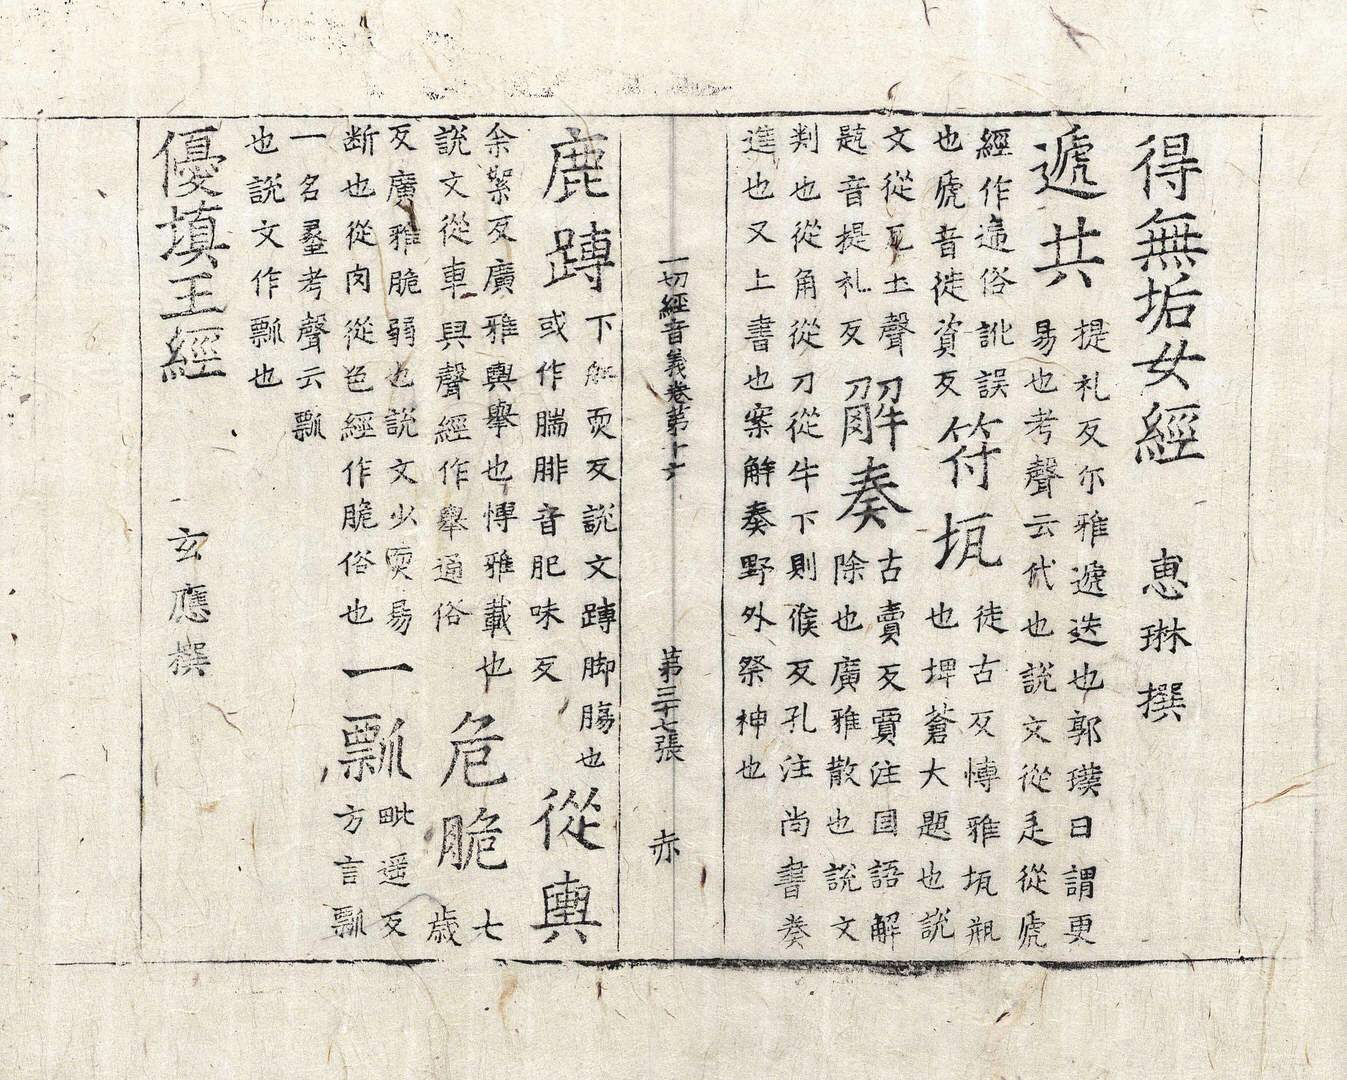 得無垢女經 惠琳撰
遞共 提礼反尔雅遞迭也郭璞曰謂更
易也考聲云代也說文從辵從虒
經作逓俗訛誤
也虒音徒資反
符 徒古反愽雅瓶
也埤蒼大題也說
文從瓦土聲
題音提礼反
解奏 古賣反賈注国語解
除也廣雅散也說文
判也從角從刀從牛下則候反孔注尚書奏
進也又上書也案解奏野外祭神也
一切經音義卷第十六 第三十七張 赤
鹿𨄔 下船耎反說文𨄔脚膓也
或作腨腓音肥味反
從輿
余絮反廣雅輿舉也愽雅載也
說文從車舁聲經作舉通俗
危脆 七
歲
反廣雅脆弱也說文少耎易
断也從肉從色經作脆俗也
一瓢 毗遥反
方言瓢
一名蠡考聲云瓢
也說文作瓢也
優填王經 玄應撰